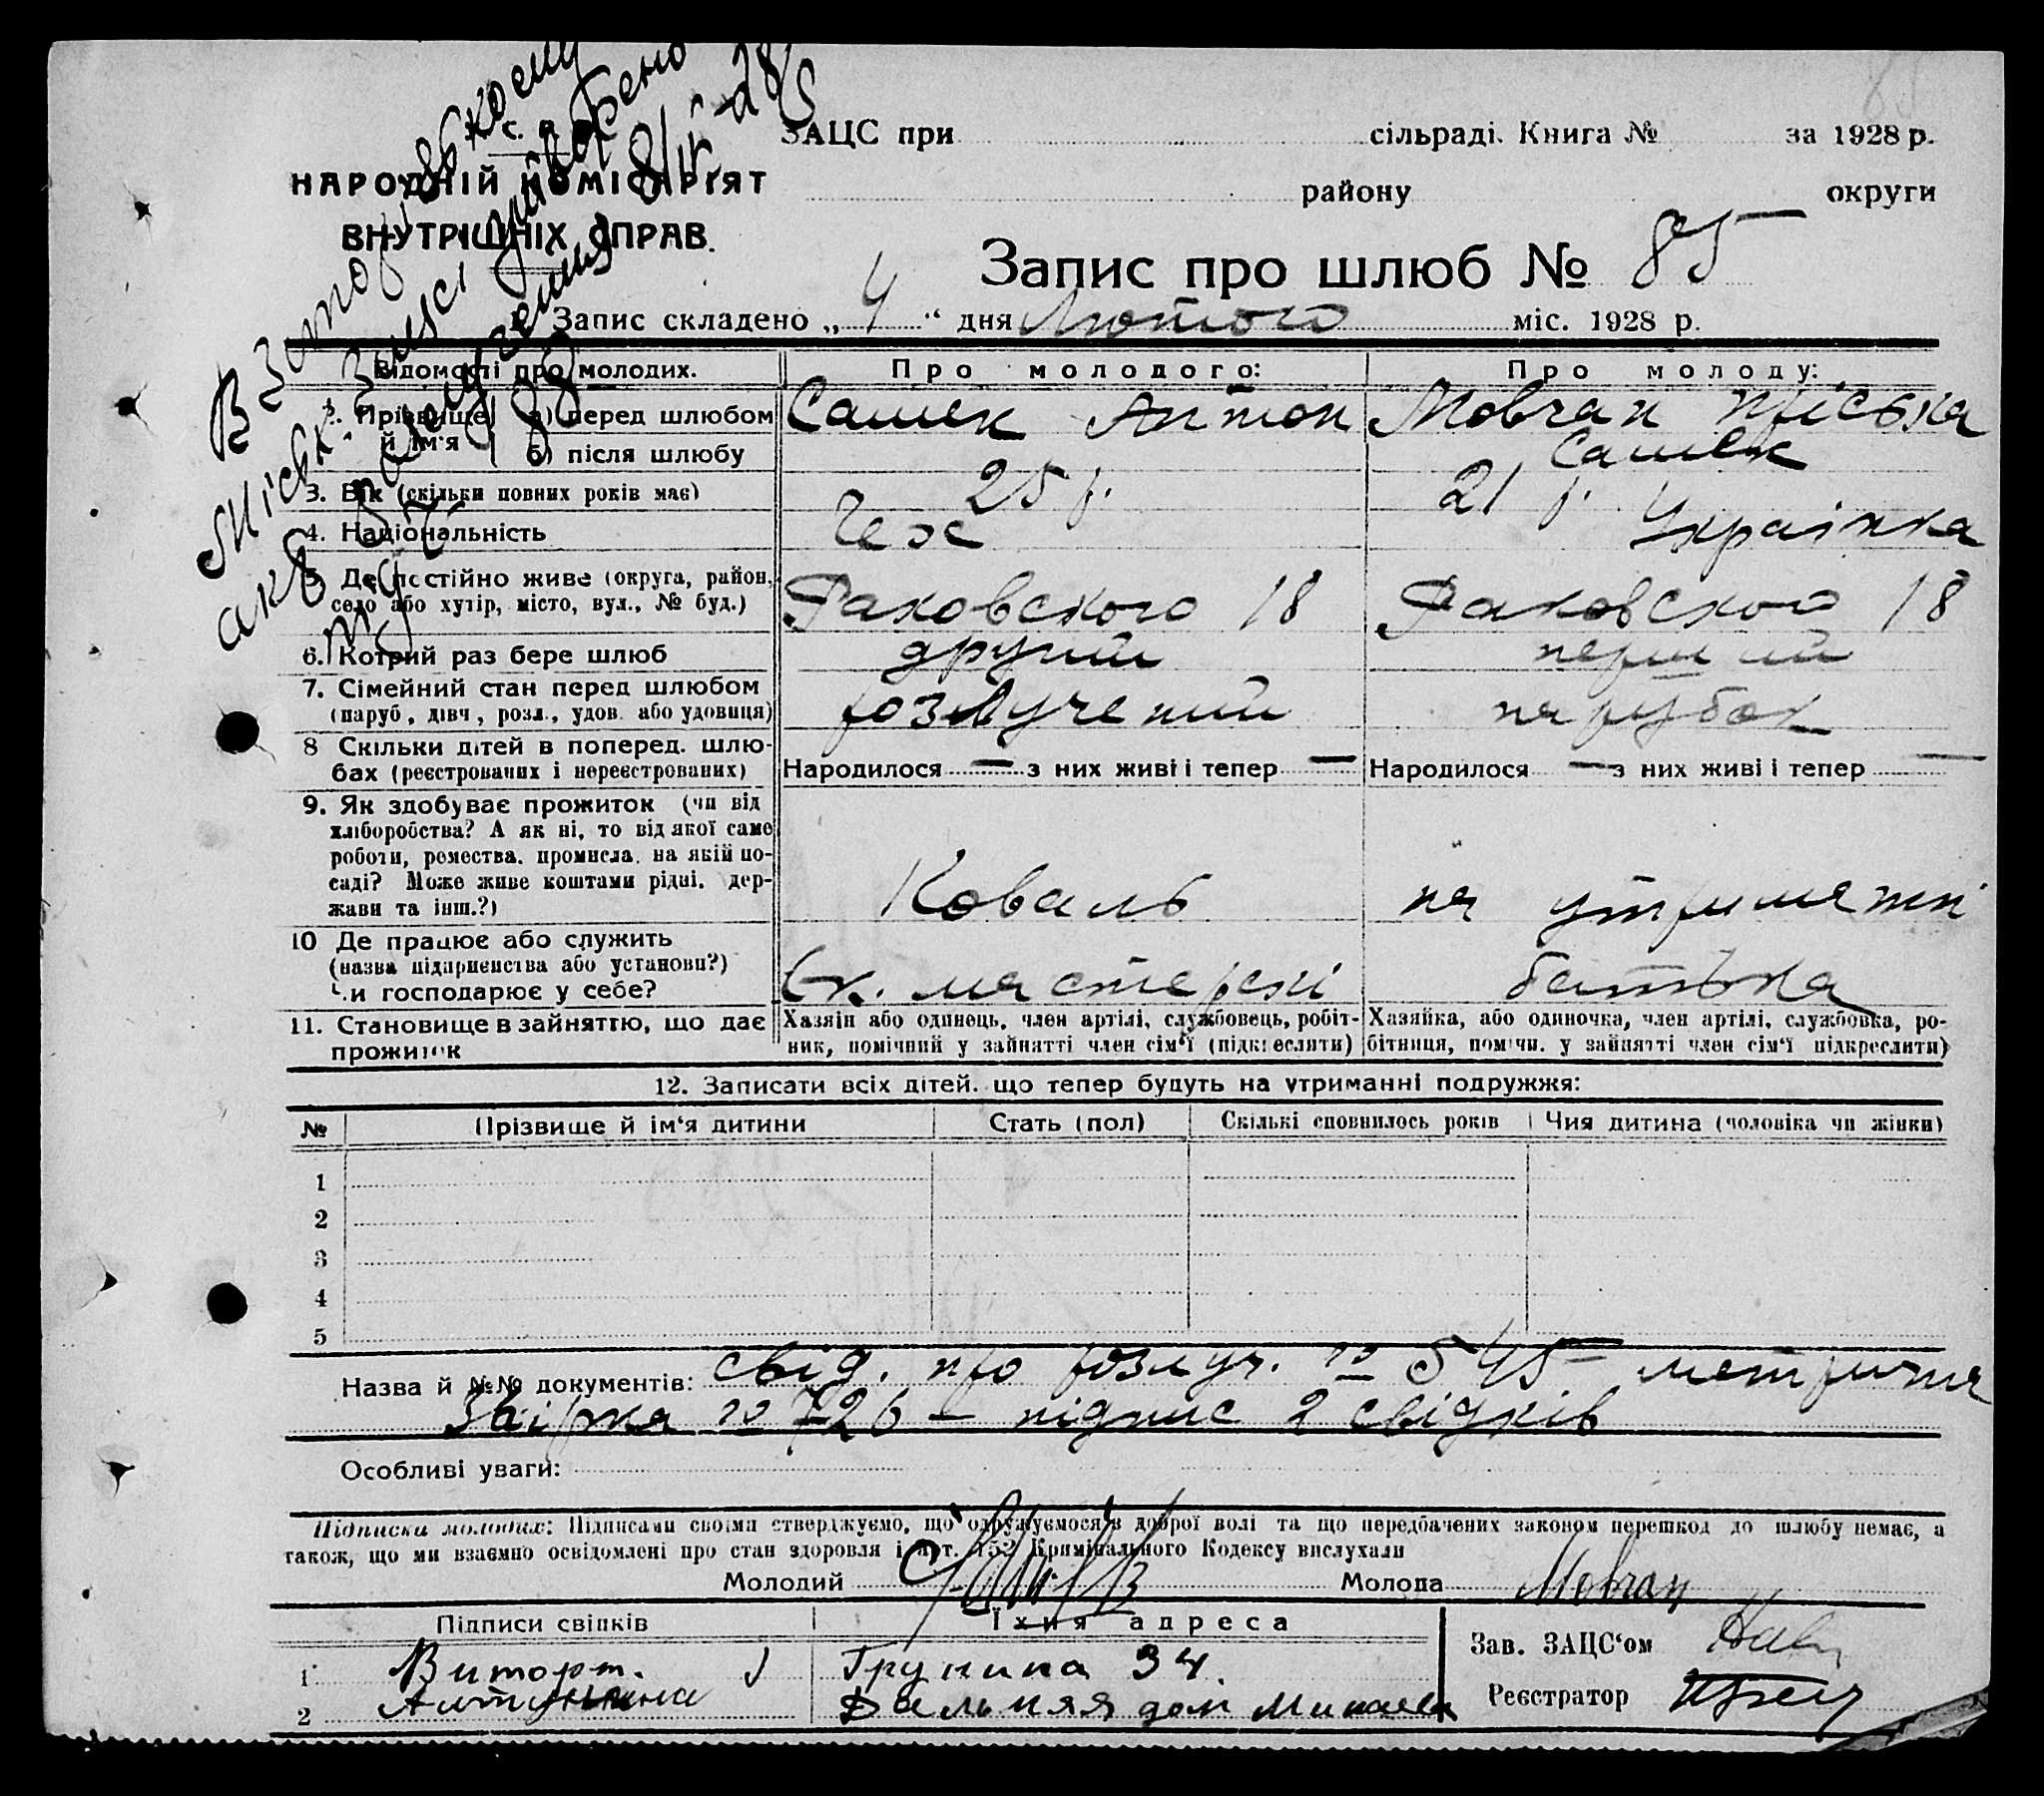 85
С. Р. Р.
НАРОДНІЙ КОМІСАРІЯТ
ВНУТРІШНІХ СПРАВ.
ЗАЦС при сільраді. Книга № за 1928 р.
району округи
Запис про шлюб № 85
Запис складено „4“ дня Лютого міс. 1928 р.
Відомості про молодих. Про молодого: Про молоду:
Прізвище й ім'я а) перед шлюбом Сашек Антон Мовчан
б) після шлюбу Сашек
3. Вік (скільки повних років має) 25 р. 21 р.
4. Національність Чех Українка
5 Де постійно живе (округа, район, Раковского 18 Раковского 18
село або хутір, місто, вул., № буд.)
6. Котрий раз бере шлюб другий перший
7. Сімейний стан перед шлюбом розлучений парубок
(паруб., дівч., розл., удов. або удовиця)
8 Скільки дітей в поперед. шлю-
бах (реєстрованих і нереєстрованих) Народилося — з них живі і тепер — Народилося — з них живі і тепер —
9. Як здобуває прожиток (чи від
хліборобства? А як ні, то від якої саме
роботи, ремества, промисла, на якій по-
саді? Може живе коштами рідні, дер- Коваль на утриманні
жави та інш.?)
10 Де працює або служить
(назва підприємства або установи?) мастерскі батька
Чи господарює у себе?
11. Становище в зайняттю, що дає Хазяїн або одинець, член артілі, службовець, робіт- Хазяйка, або одиночка, член артілі, службовка, ро-
прожиток ник, помічний у зайнятті член сім'ї (підкреслити) бітниця, помічн. у зайнятті член сім'ї підкреслити)
12. Записати всіх дітей, що тепер будуть на утриманні подружжя:
№ Прізвище й ім'я дитини Стать (пол) Скількі сповнилось років Чия дитина (чоловіка чи жінки)
1
2
3
4
5
Назва й №№ документів: свід. про розлуч. № 545 — метрична
№ 726 — підпис 2 свідків
Особливі уваги:
Підписи молодих: Підписами своїми стверджуємо, що одружуємося з доброї волі та що передбачених законом перешкод до шлюбу немає, а
також, що ми взаємно освідомлені про стан здоровля і арт. 152 Кримінального Кодексу вислухали
Молодий Молода Мовчан
Підписи свідків Їхня адреса
Зав. ЗАЦС'ом
1 34.
2 Дальняя дом
Реєстратор